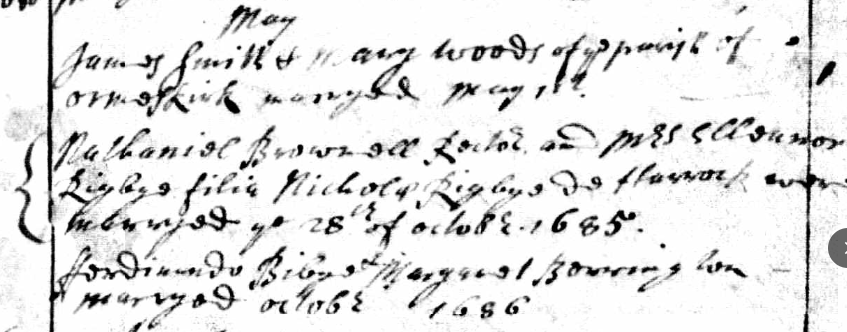 May
James Smith & Mary Woods of ye parish of
Ormeskirk marryed May 1st.
Nathaniel Brownell Rector. and Mrs Elleanor
Rigbye filia Nichols Rigbye de Harrock were
marryed ye 28th of octobr. 1685.
Ferdinando Bibye & Margaret Berrington
marryed octobr 1686